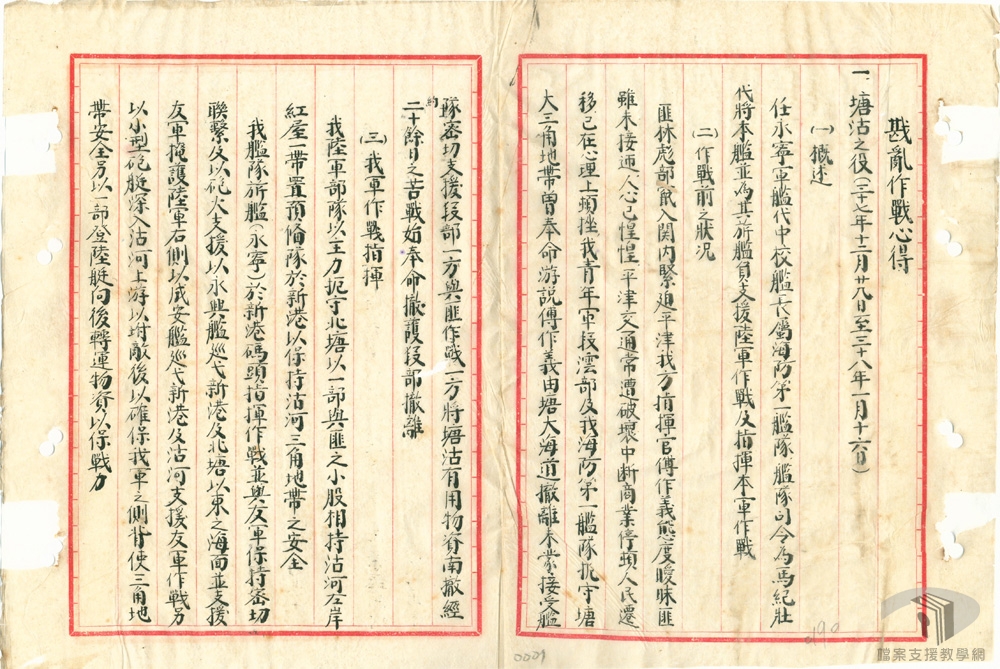 戡亂作戰心得
一、塘沽之役(三十七年十二月廿九日至三十八年一月十六日)
(一)概述
任永寧軍艦代中校艦長屬海防第一艦隊艦隊司令為馬紀壯
代將本艦並為其旂艦負支援陸軍作戰及指揮本軍作戰
(二)作戰前之狀況
匪林彪部竄入関內緊迫平津我方指揮官傅作義態度曖昧匪
雖未接近人心已惶惶平津交通常遭破壞中断商業停頓人民遷
移己在心理上頓挫我青年軍段澐部及我海防第一艦隊扼守塘
大三角地帶曾奉命游說傅作義由塘大海道撤離未蒙接受艦
隊密切支援段部一方與匪作戰一方將塘沽有用物資南撤經
約二十餘日之苦戰始奉命撤護段部撤離
(三)我軍作戰指揮
我陸軍部隊以主力扼守北塘以一部與匪之小股相持沽河左岸
紅屋一帶置預備隊於新港以保持沽河三角地帶之安全
我艦隊旂艦(永寧)於新港碼頭指揮作戰並與友軍保持密切
聯繫及以砲火支援以永興艦巡弋新港及北塘以東之海面並支援
友軍掩護陸軍右側以咸安艦巡弋新港及沽河支援友軍作戰另
以小型砲艇深入沽河上游以拊敵後以確保我軍之側背使三角地
帶安全另以一部登陸艇向後轉運物資以保戰力
0001
490
檔案支援教學網